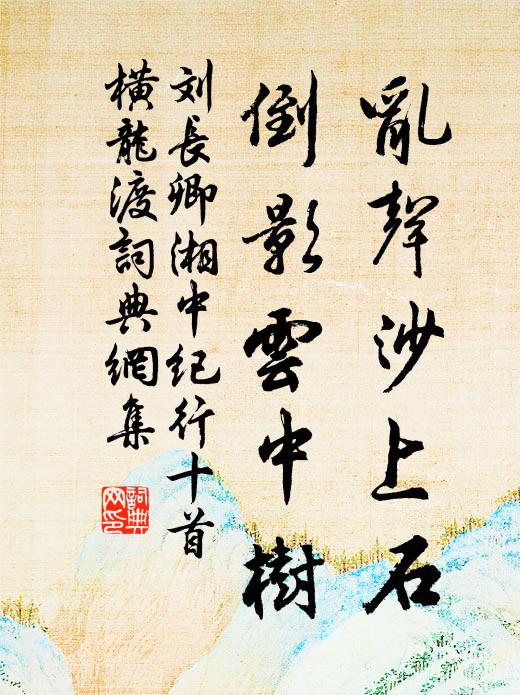 亂聲沙上石
倒影雲中樹
刘長卿湘中纪行十首
橫龍渡詞典網集
詞典
网印